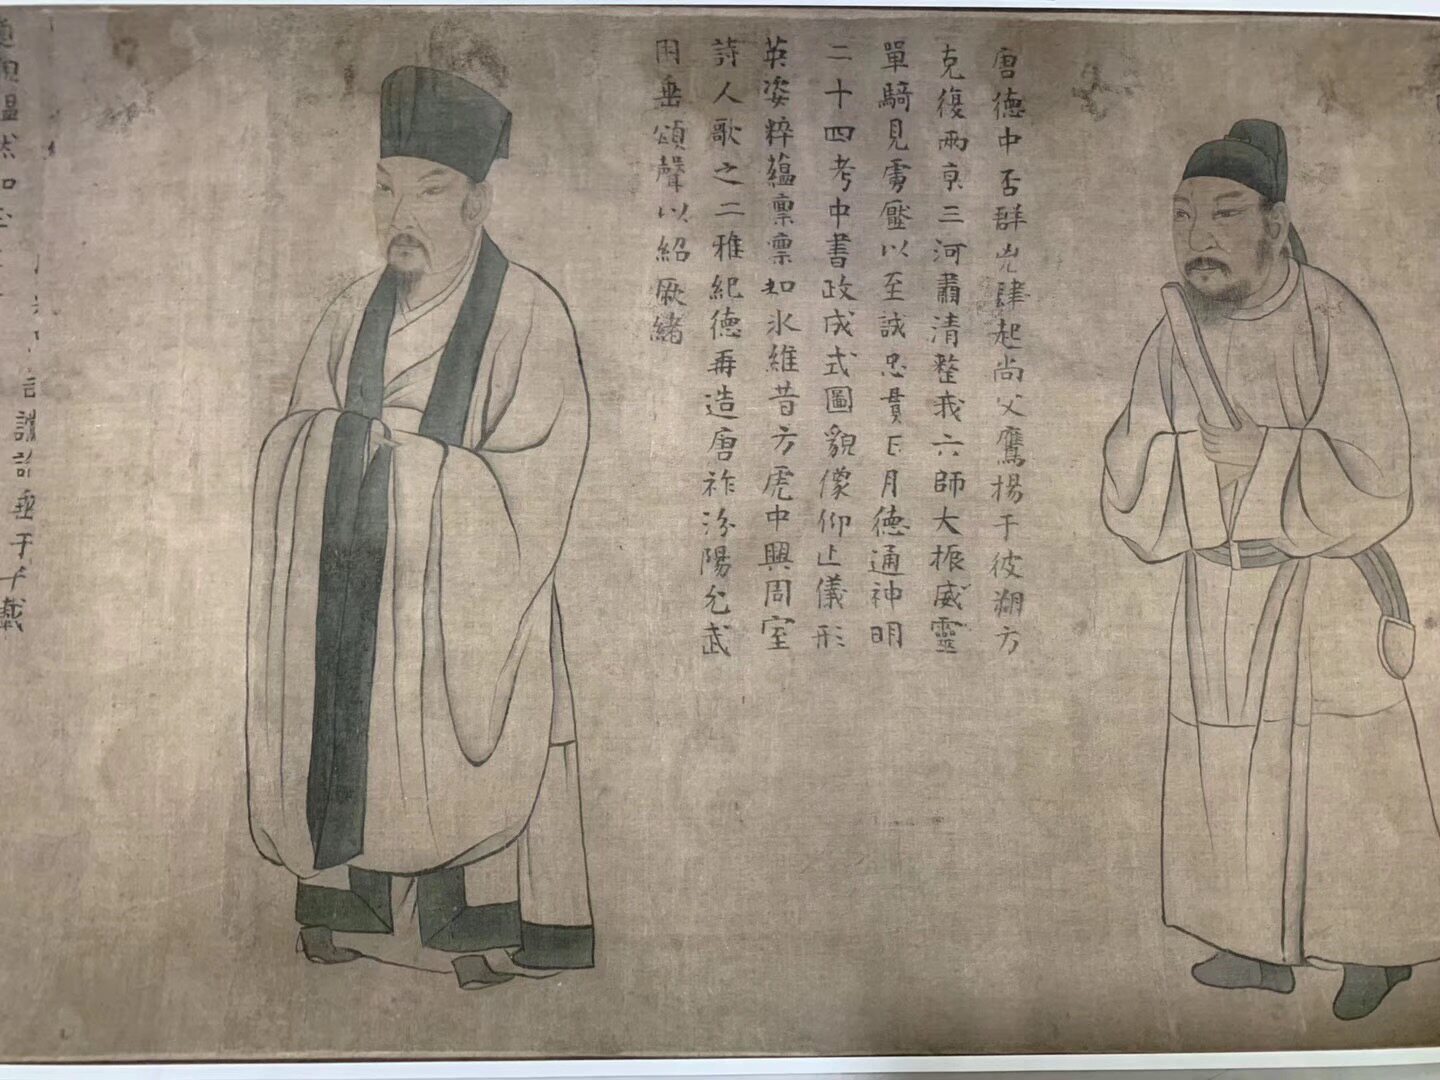 唐德中否群兇肆起尚父鷹揚于彼朔方
克復兩京三河肅清整我六師大振威靈
單騎見虜壓以至誠忠貫日月德通神明
二十四考中書政成式圖貌像仰止儀形
英姿粹蘊凜凜如氷維昔方虎中興周室
詩人歌之二雅紀德再造唐祚汾陽允武
用垂頌聲以紹厥緒
垂于千載